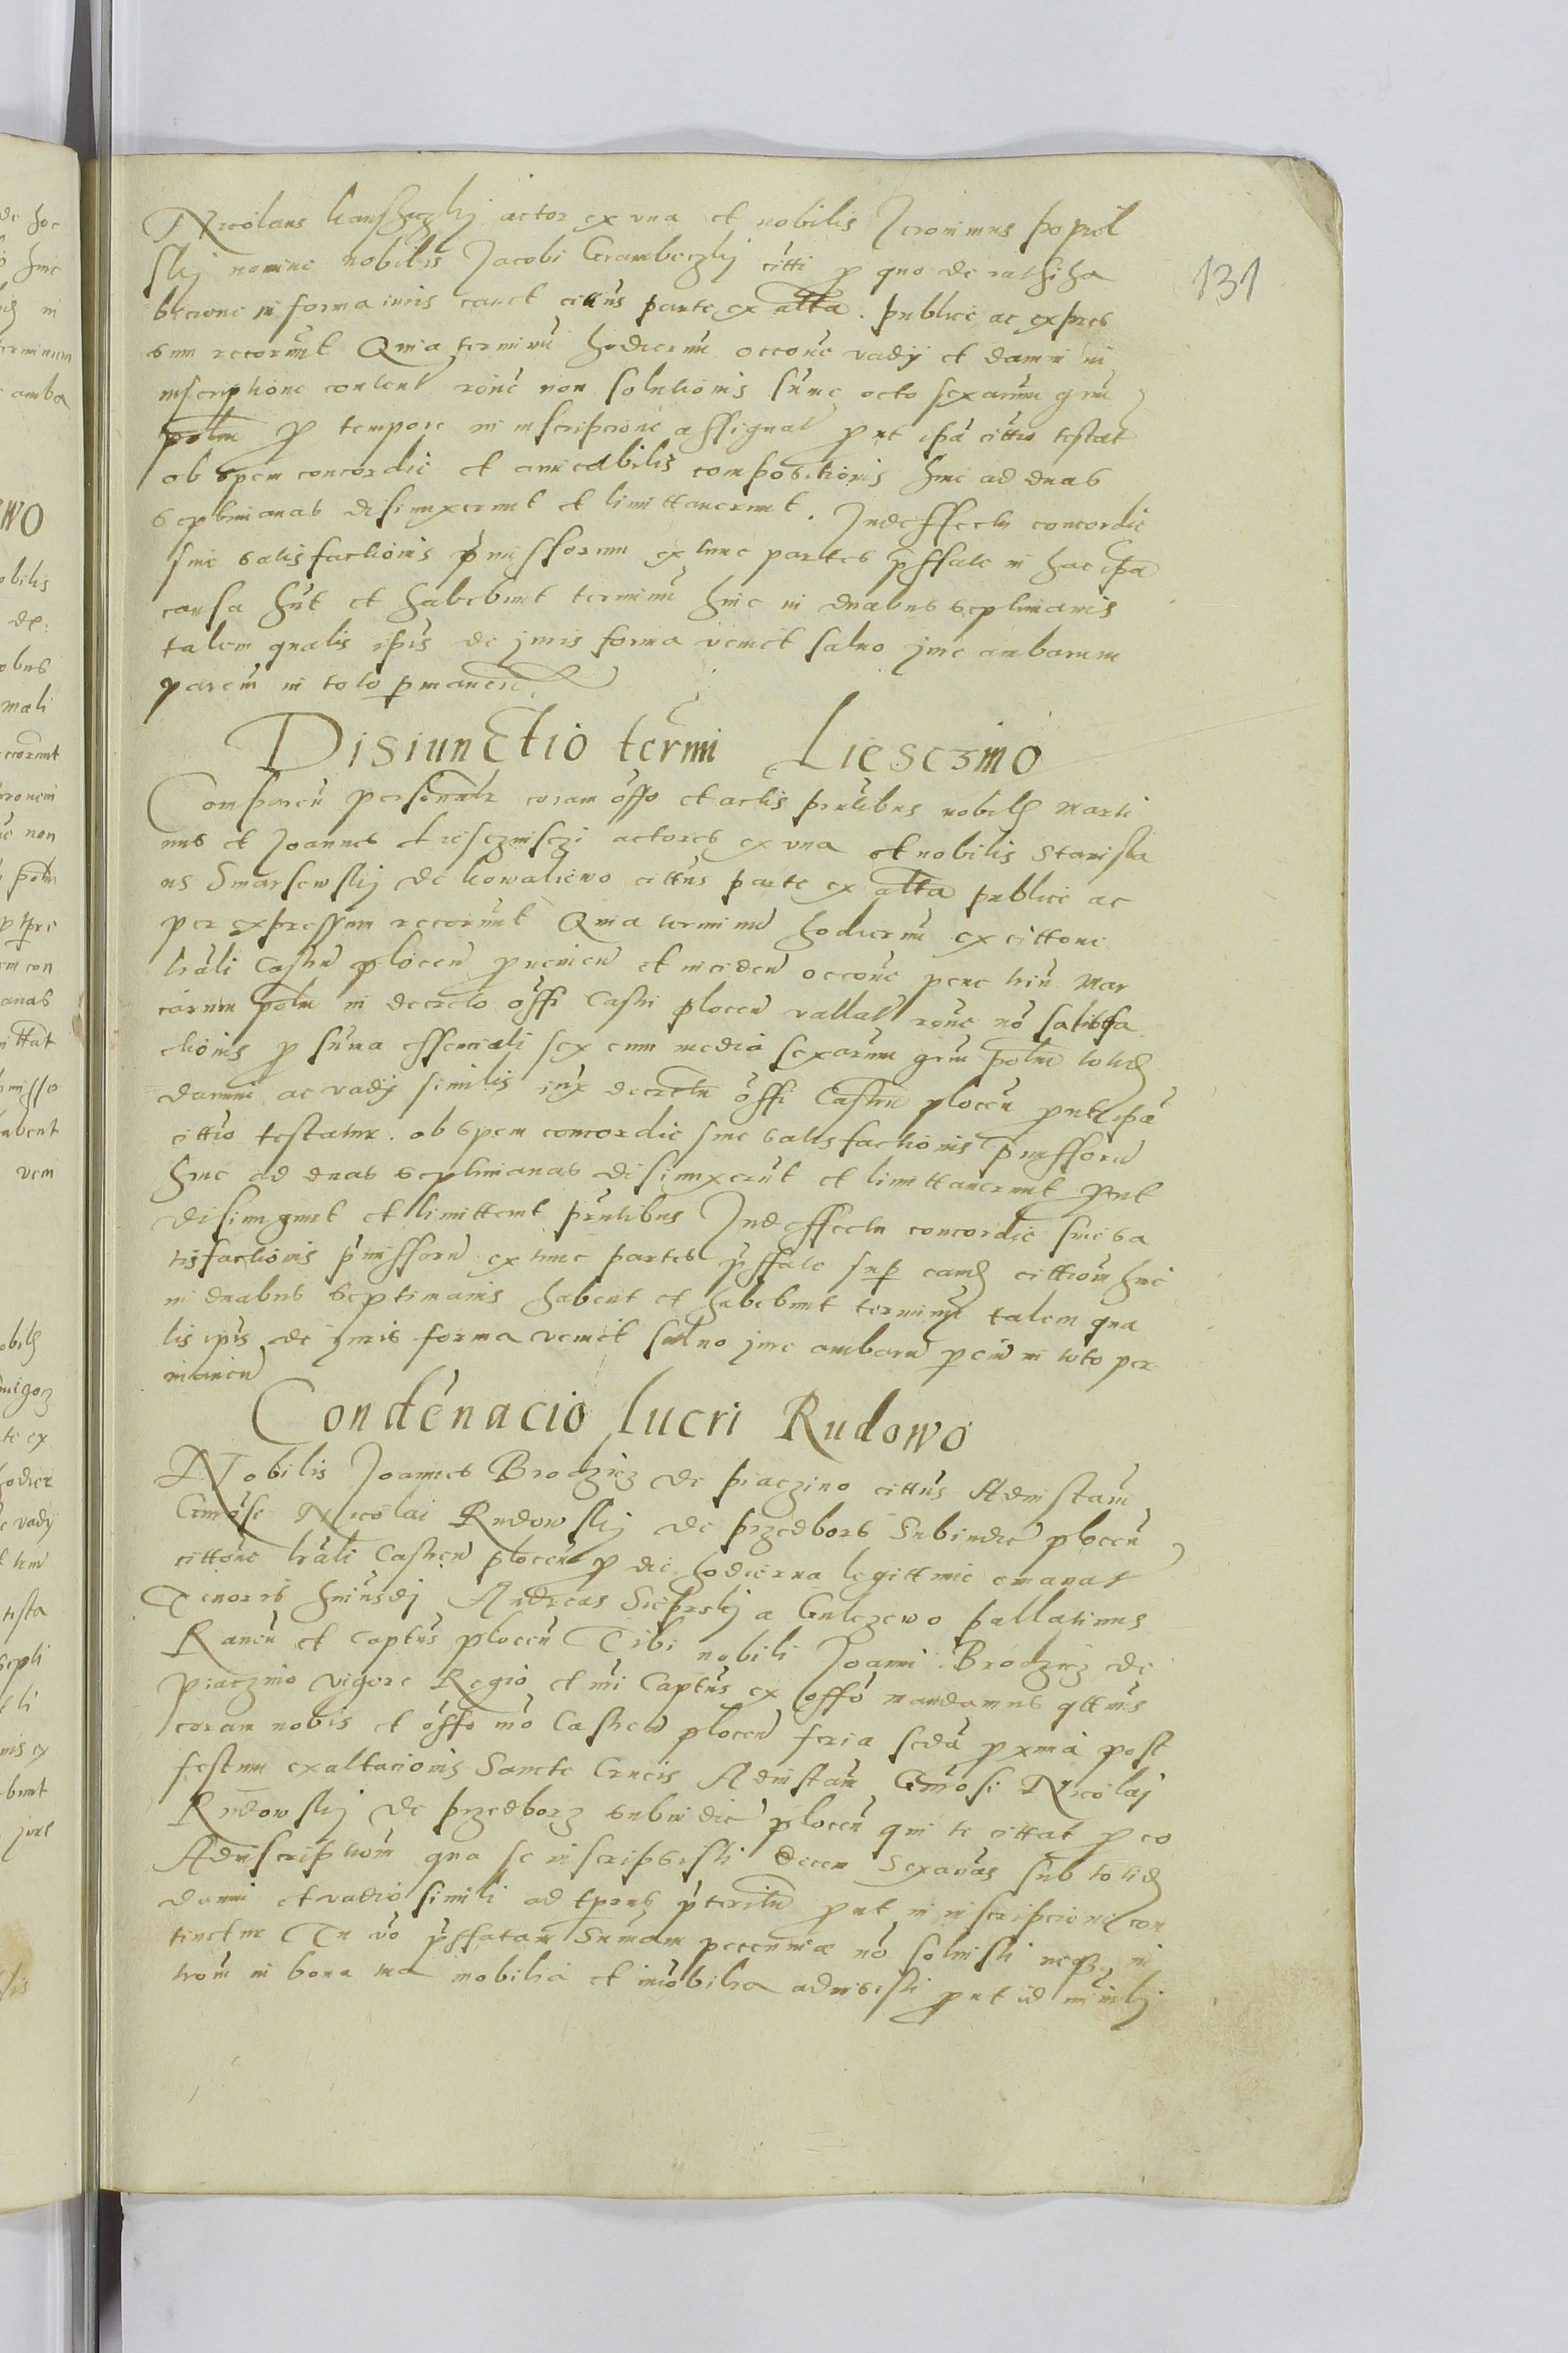 131
Nicolaus actor ex una et nobilis Jeronimus Popiel
skij nomine nobilis Jacobi Grambeczkij citti p quo de rathiha
bicione in forma iuris cauet cittus parte ex altta. publice ac expres
sum recorunt Quia terminu hodiernu occone vadij et damni in
inscriptione content rone non solutionis sume octo sexarum gru
polm p tempore in inscripcione assignat put ipa cittio testat
ob spem concordie et amicabilis compositionis hinc ad duas
septimanas disiunxerunt et limittauerunt. Indeffectu concordie
sine satisfactionis pmissorum ex tunc partes pffate in hac ipa
causa hnt et habebunt terminu hinc in duabus septimanis
talem qualis ipis de juris forma venit saluo jure ambarum
parciu in toto pmanen
Disiunctio termi Liesczino
Comparen personalr coram offo et actis pntibus nobiles Marti
nus et Joannes actores ex una et nobilis Stanisla
us Smarsewskij de kowalewo cittus parte ex altta publice ac
per expressum recorunt Quia terminu hodiernu ex cittone
lrali Castren plocen puenien et inciden occone pene triu Mar
carum polm in decreto offi Castri plocen vallat rone no satisfa
ctionis p suma essenciali sex cum media sexarum gru polm totid
damni ac vadij similis iux decretu offi Castren plocen put ipa
cittio testatur. ob spem concordie sine satisfactionis pmissoru
hinc ad duas septimanas disiunxerut et limittauerunt put
disiungunt et limittent pntibus Indeffectu concordie sine sa
tisfactionis pmissoru ex tunc partes pffate sup eand cittiom hinc
in duabus septimanis habent et habebunt terminu talem qua
lis ipis de juris forma venit saluo jure ambaru pciu in toto per
manen
Condenacio lucri Rudowo
Nobilis Joannes Brodzicz de piaczino cittus Adinstam
Gnrosi Nicolai Rudowskij de przedbors Subiudic plocen
cittone lrali Castren plocen p die hodierna legittime emanat
Tenoris huiusdj Andreas Sieprskij a Gulczewo pallatinus
Rauen et Captus plocen Tibi nobili Joanni Brodzicz de
piaczino vigore Regio et mi Captus ex offo mandamus qttnus
coram nobis et offo mo Castren plocen feria scda pxima post
festum exaltacionis Sancte Crucis Adinstam Gnrosi Nicolaj
Rudowskij de przedborz subiudic plocen qui te cittat p eo
Adinscriptiom qua se inscripsisti decem Sexanas sub totid
damni et vadio simili ad tpous pteritu put in inscripcione con
tinetur Tu vo pffatam Sumam pecunie no soluisti neqz in
trom in bona tua mobilia et imobilia admisisti put id